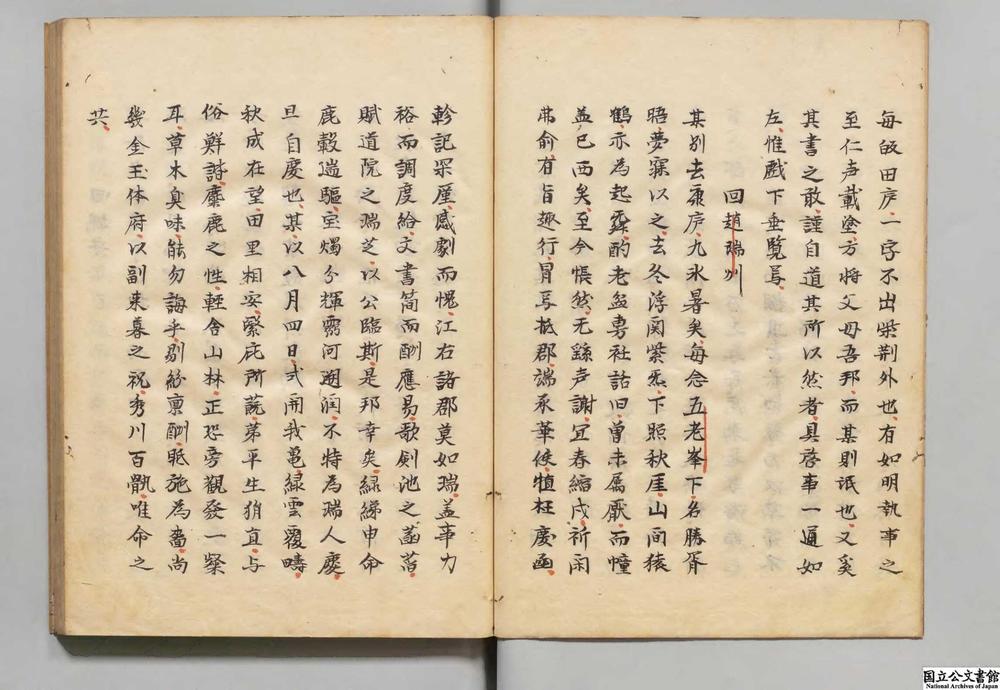 每敀田庐一字不出柴荆外也有如明執事之
至仁声載塗方将父母吾邦而某則氓也又奚
其書之敢謹自道其所以然者具啓事一通如
左惟戲下垂覧焉
回趙瑞州
某别去康庐九氷暑矣每念五老峯下名勝胥
晤夢寐以之去冬浮関紫炁下照秋厓山間猿
鶴亦為起舞酌老盆勇社詰旧曽未属厭而幢
盖已西矣至今悵然无繇声謝宜春縮戍祈闲
弗俞有旨趣行冒焉抵郡端承華倐慎枉慶函
軫記深厚感劇而愧江右諸郡莫如瑞盖事力
裕而調度給文書簡而酬應易歌劍池之菡萏
賦道院之瑞芝以公臨斯是邦幸矣緑綈申命
鹿轂遄驅宝燭分輝霱河遡润不特為瑞人慶
旦自慶也某以八月四日式開我黽緑雲覆疇
秋成在望田里相安緊庇所蔇第平生狷直与
俗鮮諧麋鹿之性輕舎山林正恐旁觀發一粲
耳草木臭味能勿誨乎剔紗禀酬眂施為嗇尚
幾金玉体府以副来暮之祝秀川百骩唯命之
共
国立公文書館
National Archives of Japan